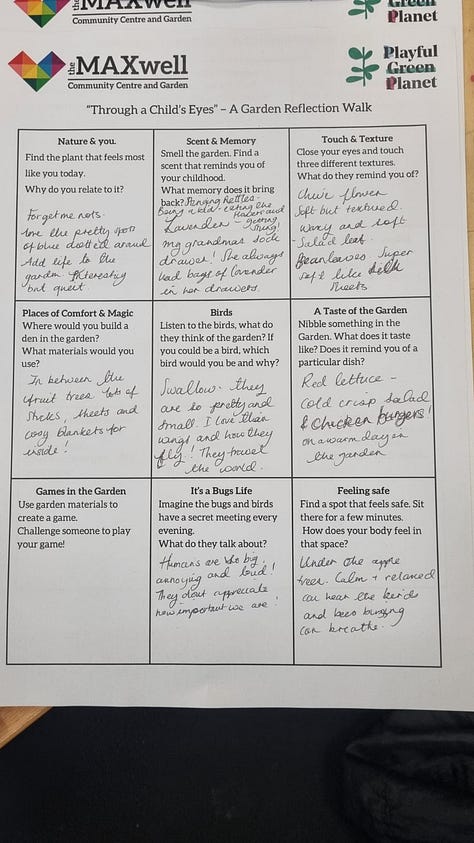 MAXwell
Community Centre and Garden
Green
Planet
the MAXwell
Community Centre and Garden
Playful
Green
Planet
"Through a Child's Eyes" – A Garden Reflection Walk
Nature & you.
Find the plant that feels most
like you today.
Why do you relate to it?
Forget me nots.
love the pretty spots
of blue dotted around
Add life to the
garden. Interesting
but quiet.
Scent & Memory
Smell the garden. Find a
scent that reminds you of
your childhood.
What memory does it bring
back? Stinging Nettles -
Being a kid - eating the
flowers and
Lavender - getting
stung!
my grandmas sock
drawer! She always
had bags of lavender
in her drawers.
Touch & Texture
Close your eyes and touch
three different textures.
What do they remind you of?
Chive flower
Soft but textured
waxy and soft
- Salad leaf.
Bean leaves Super
soft like silk
sheets
Places of Comfort & Magic
Where would you build a
den in the garden?
What materials would you
use?
In between the
fruit trees lots of
sticks, sheets and
cosy blankets for
inside!
Birds
Listen to the birds, what do
they think of the garden? If
you could be a bird, which
bird would you be and why?
Swallow - they
are so pretty and
small. I love their
wings and how they
fly!! They travel
the world.
A Taste of the Garden
Nibble something in the
Garden. What does it taste
like? Does it remind you of a
particular dish?
Red lettuce -
cold crisp salad
& chicken burgers!
on a warm day in
the garden
Games in the Garden
Use garden materials to
create a game.
Challenge someone to play
your game!
It's a Bugs Life
Imagine the bugs and birds
have a secret meeting every
evening.
What do they talk about?
Humans are too big
annoying and loud!
They dont appreciate
how important we are!
Feeling safe
Find a spot that feels safe. Sit
there for a few minutes.
How does your body feel in
that space?
Under the apple
trees. Calm + relaxed
can hear the birds
and bees buzzing
can breathe.